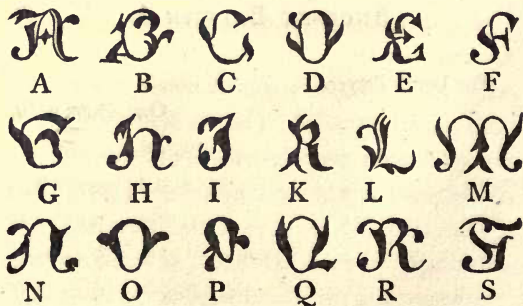 A B C D E F
A B C D E F
G H I K L M
G H I K L M.
N O P Q R S
N O P Q R S